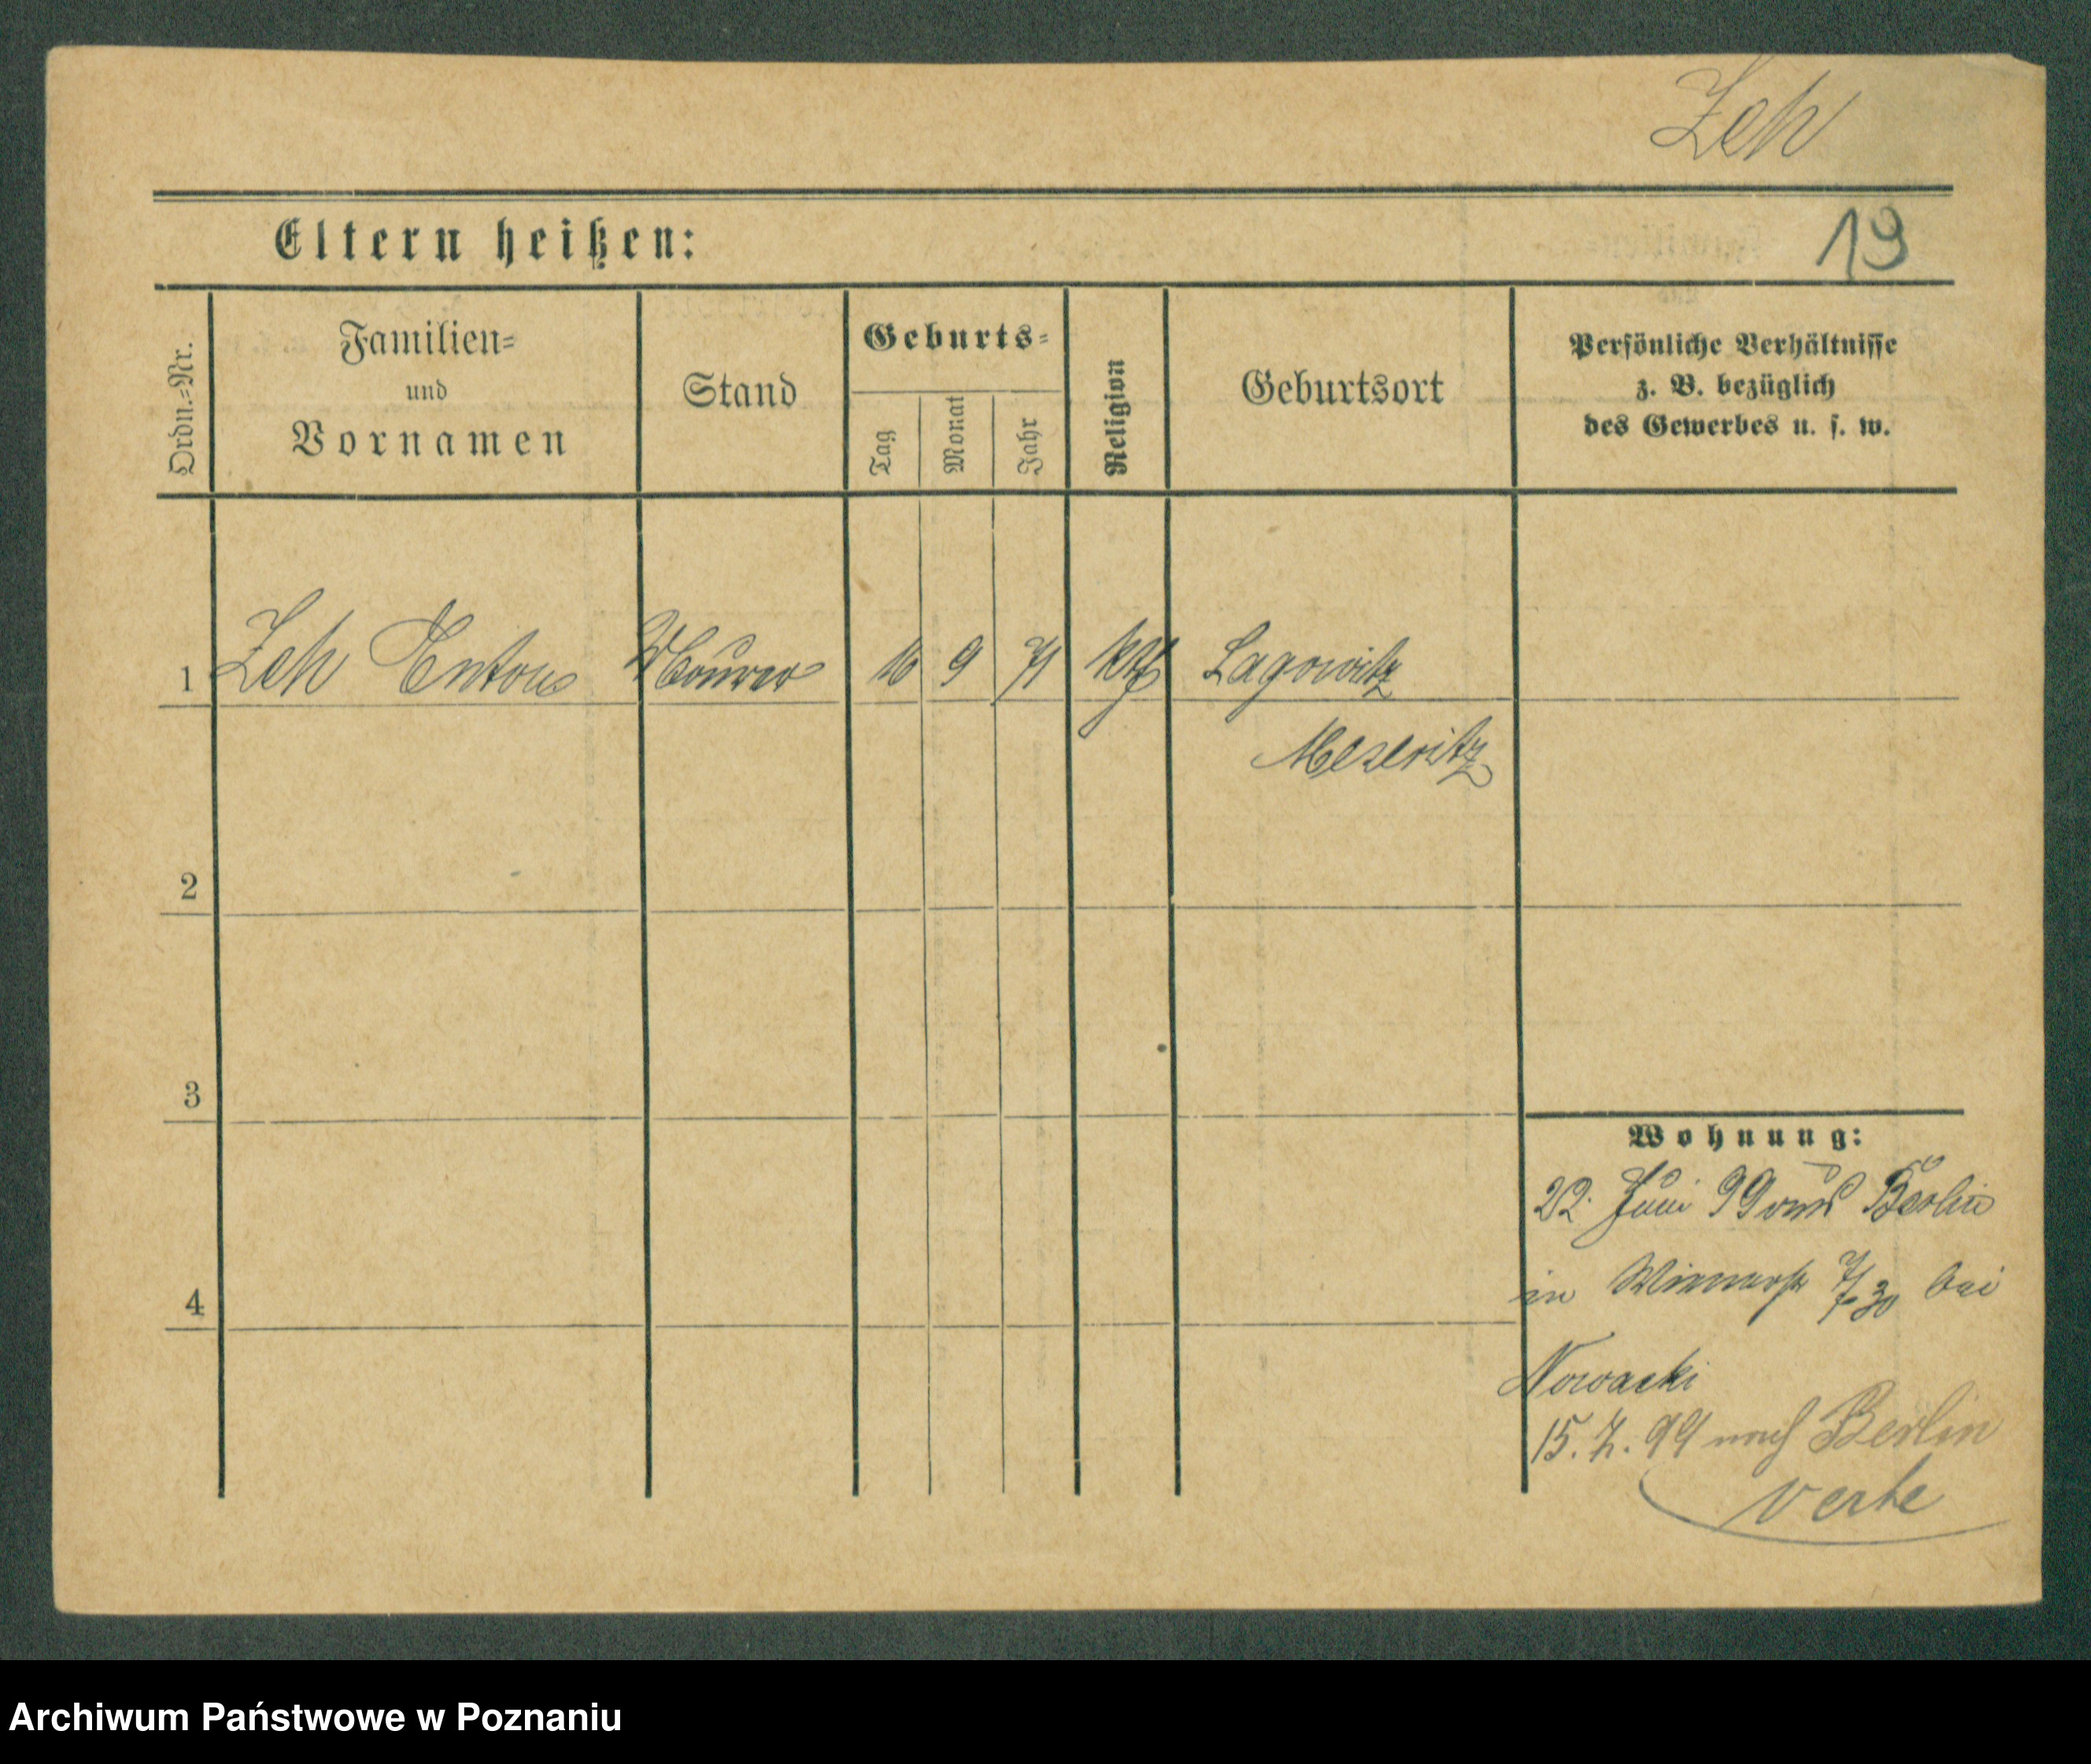 Zeh
Eltern heißen:
19
Ordn.=Nr.
Familien=
und
Vornamen
Stand
Geburts=
Tag
Monat
Jahr
Religion
Geburtsort
Persönliche Verhältnisse
z. B. bezüglich
des Gewerbes u. s. w.
1 Zeh Anton Maurer 16 9 71 kth Lagowitz
Meseritz
2
3
4
Wohnung:
22. Juni 99 von Berlin
in 7/30 bei
Nowacki
15.7.99 nach Berlin
verte
Archiwum Państwowe w Poznaniu